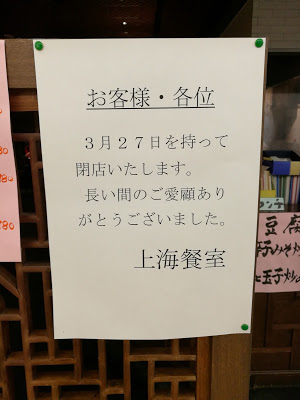 お客様・各位
３月２７日を持って
閉店いたします。
長い間のご愛顧あり
がとうございました。
上海餐室